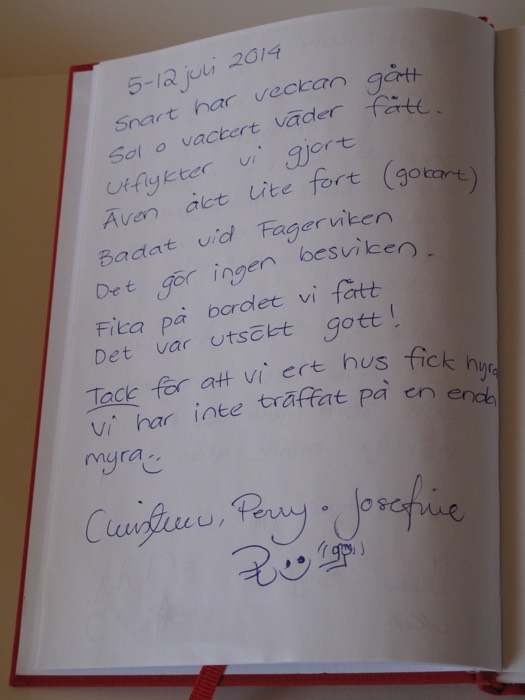 5-12 juli 2014
Snart har veckan gått
Sol o vackert väder fått.
Utflykter vi gjort
Även åkt lite fort (gokart)
Badat vid Fagerviken
Det gör ingen besviken.
Fika på bordet vi fått
Det var utsökt gott!
Tack för att vi ert hus fick hyra
Vi har inte träffat på en enda
myra
Perry . Josefine